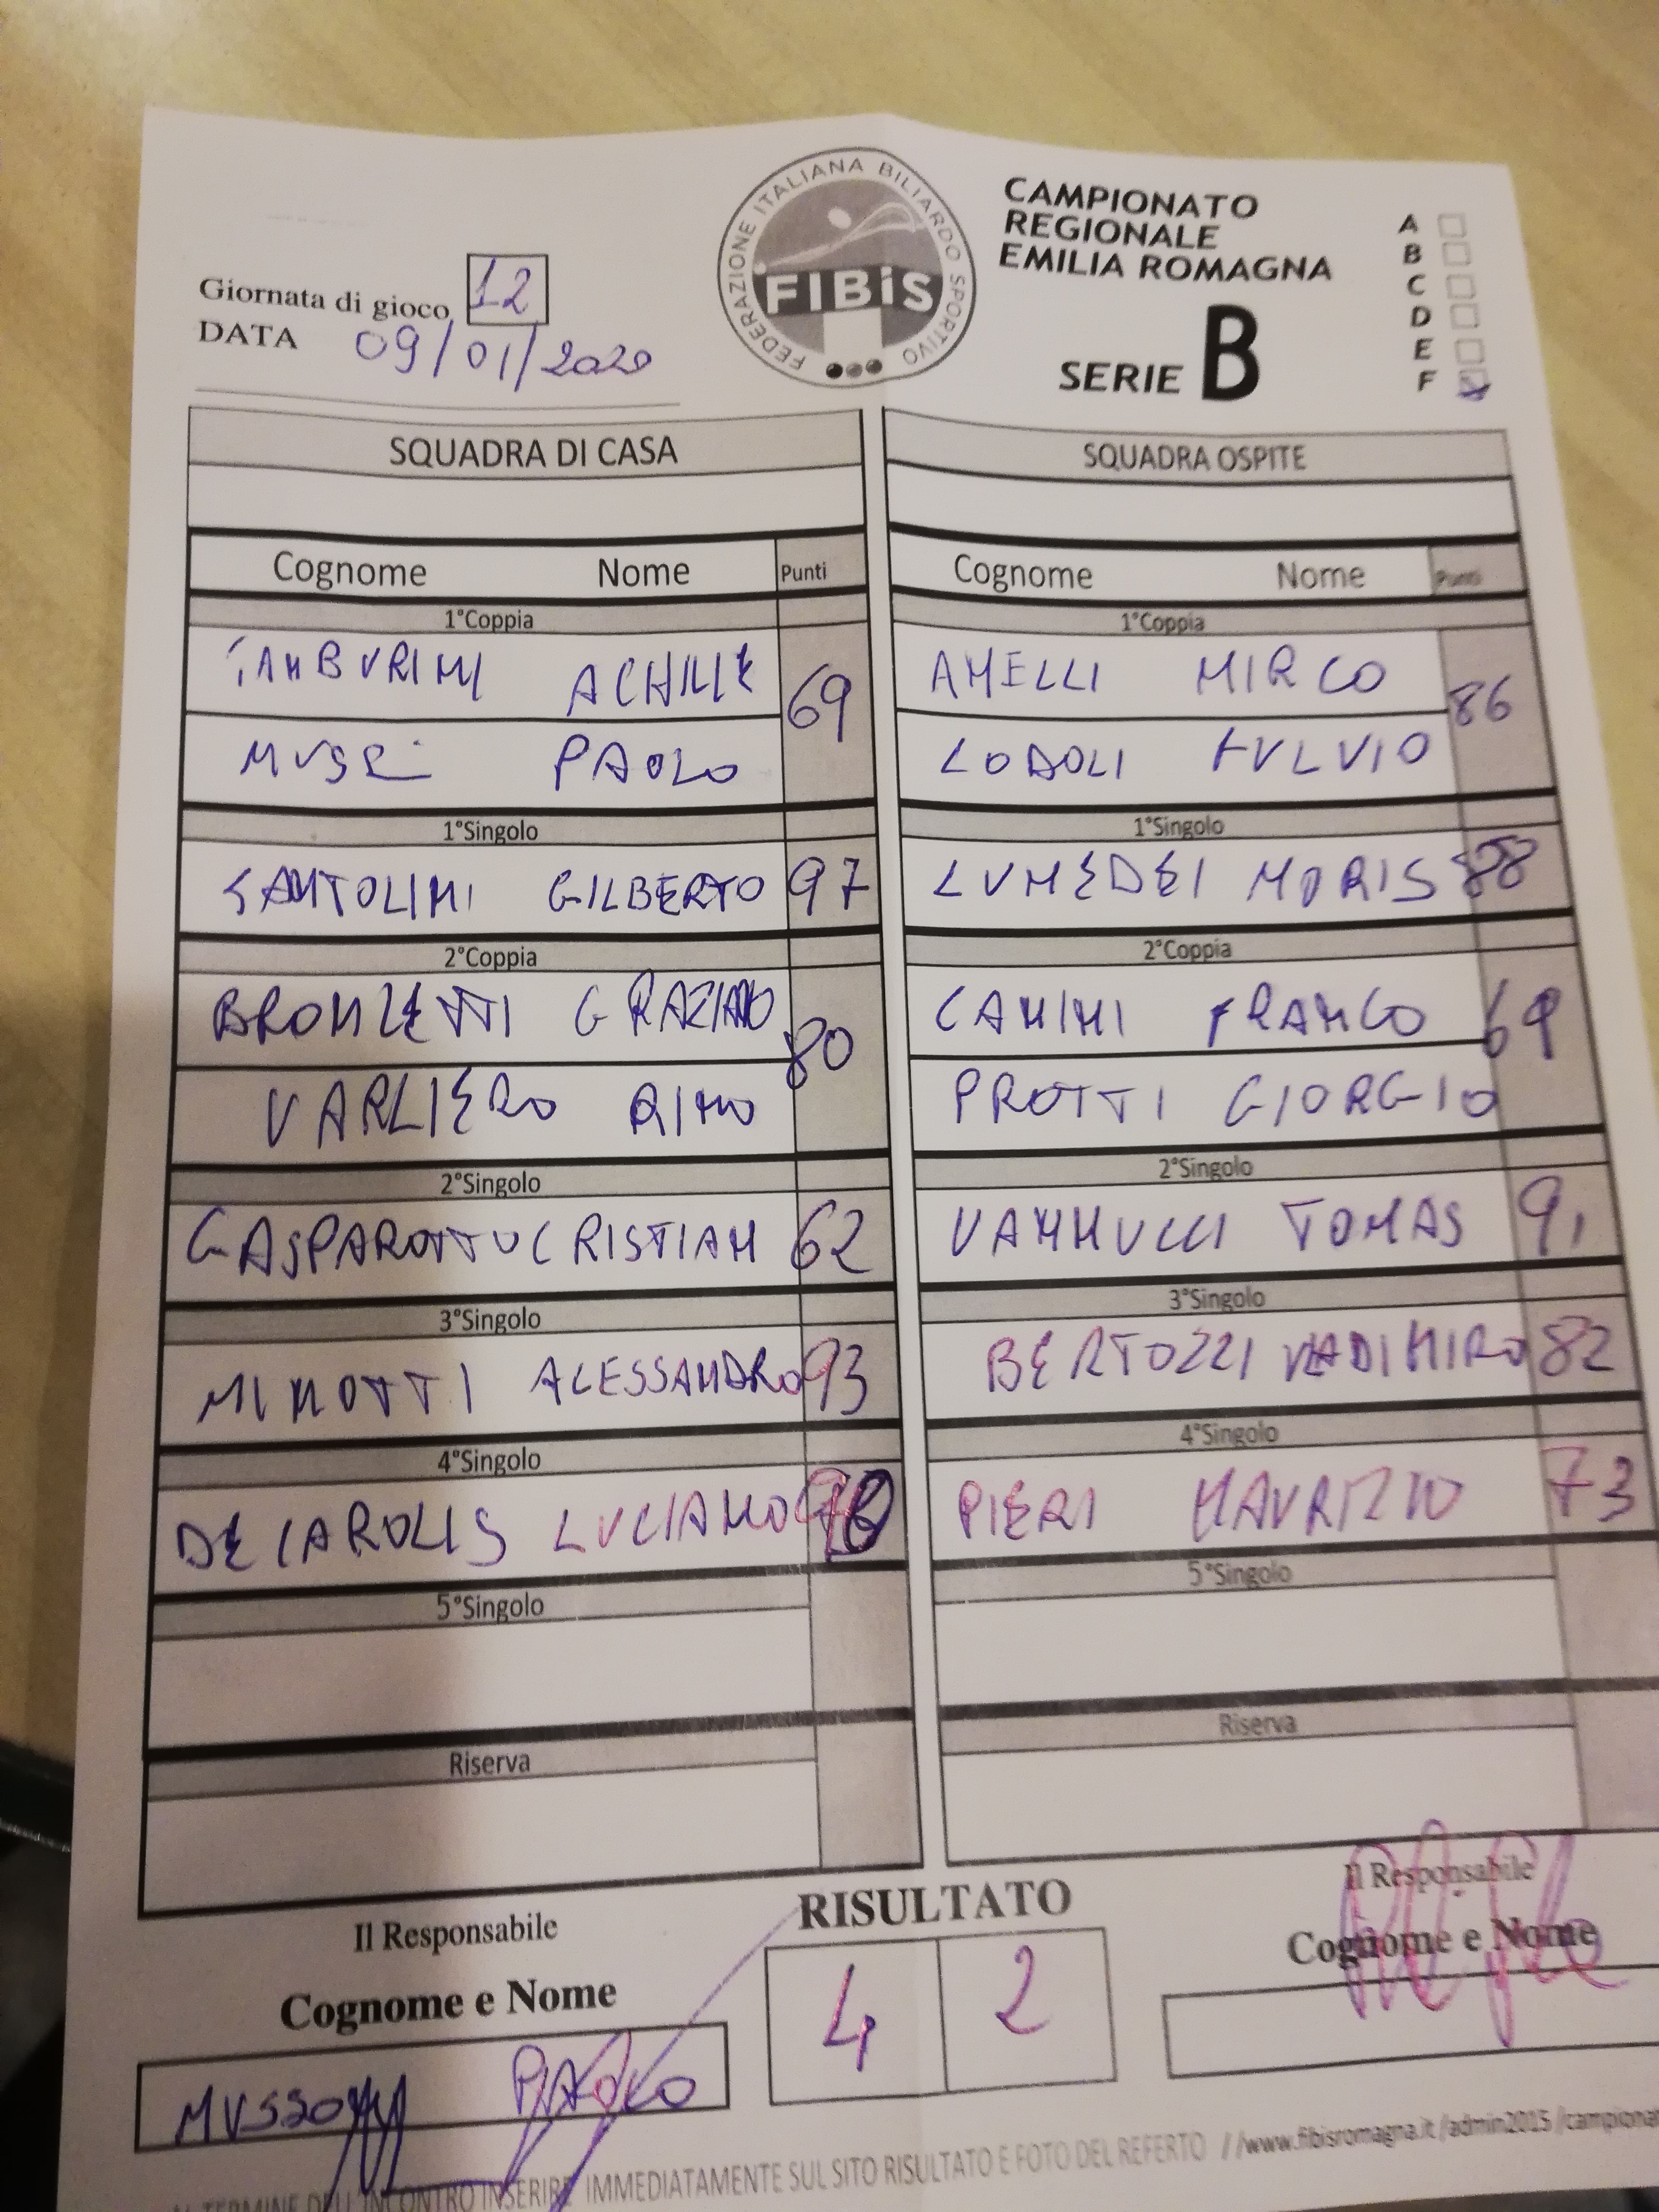 FEDERAZIONE ITALIANA BILIARDO SPORTIVO
FIBiS
CAMPIONATO
REGIONALE
EMILIA ROMAGNA
SERIE B
A
B
C
D
E
F
Giornata di gioco 12
DATA 09/01/2020
SQUADRA DI CASA
Cognome Nome Punti
1°Coppia
TAMBURINI ACHILLE 69
PAOLO
1°Singolo
SANTOLINI GILBERTO 97
2°Coppia
BRONZETTI GRAZIANO 80
VARLIERO RINO
2°Singolo
GASPAROTTO CRISTIAN 62
3°Singolo
MINOTTI ALESSANDRO 93
4°Singolo
DECAROLIS LUCIANO
5°Singolo
Riserva
SQUADRA OSPITE
Cognome Nome Punti
1°Coppia
AMELLI MIRCO 86
LODOLI FULVIO
1°Singolo
LUMEDEI MORIS 88
2°Coppia
CANINI FRANCO 69
PROTTI GIORGIO
2°Singolo
VANNUCCI TOMAS 91
3°Singolo
BERTOZZI VLADIMIRO 82
4°Singolo
PIERI MAURIZIO 73
5°Singolo
Riserva
Il Responsabile
Cognome e Nome
PAOLO
RISULTATO
4 2
Il Responsabile
Cognome e Nome
AL TERMINE DELL'INCONTRO INSERIRE IMMEDIATAMENTE SUL SITO RISULTATO E FOTO DEL REFERTO //www.fibisromagna.it/admin2015/campionat